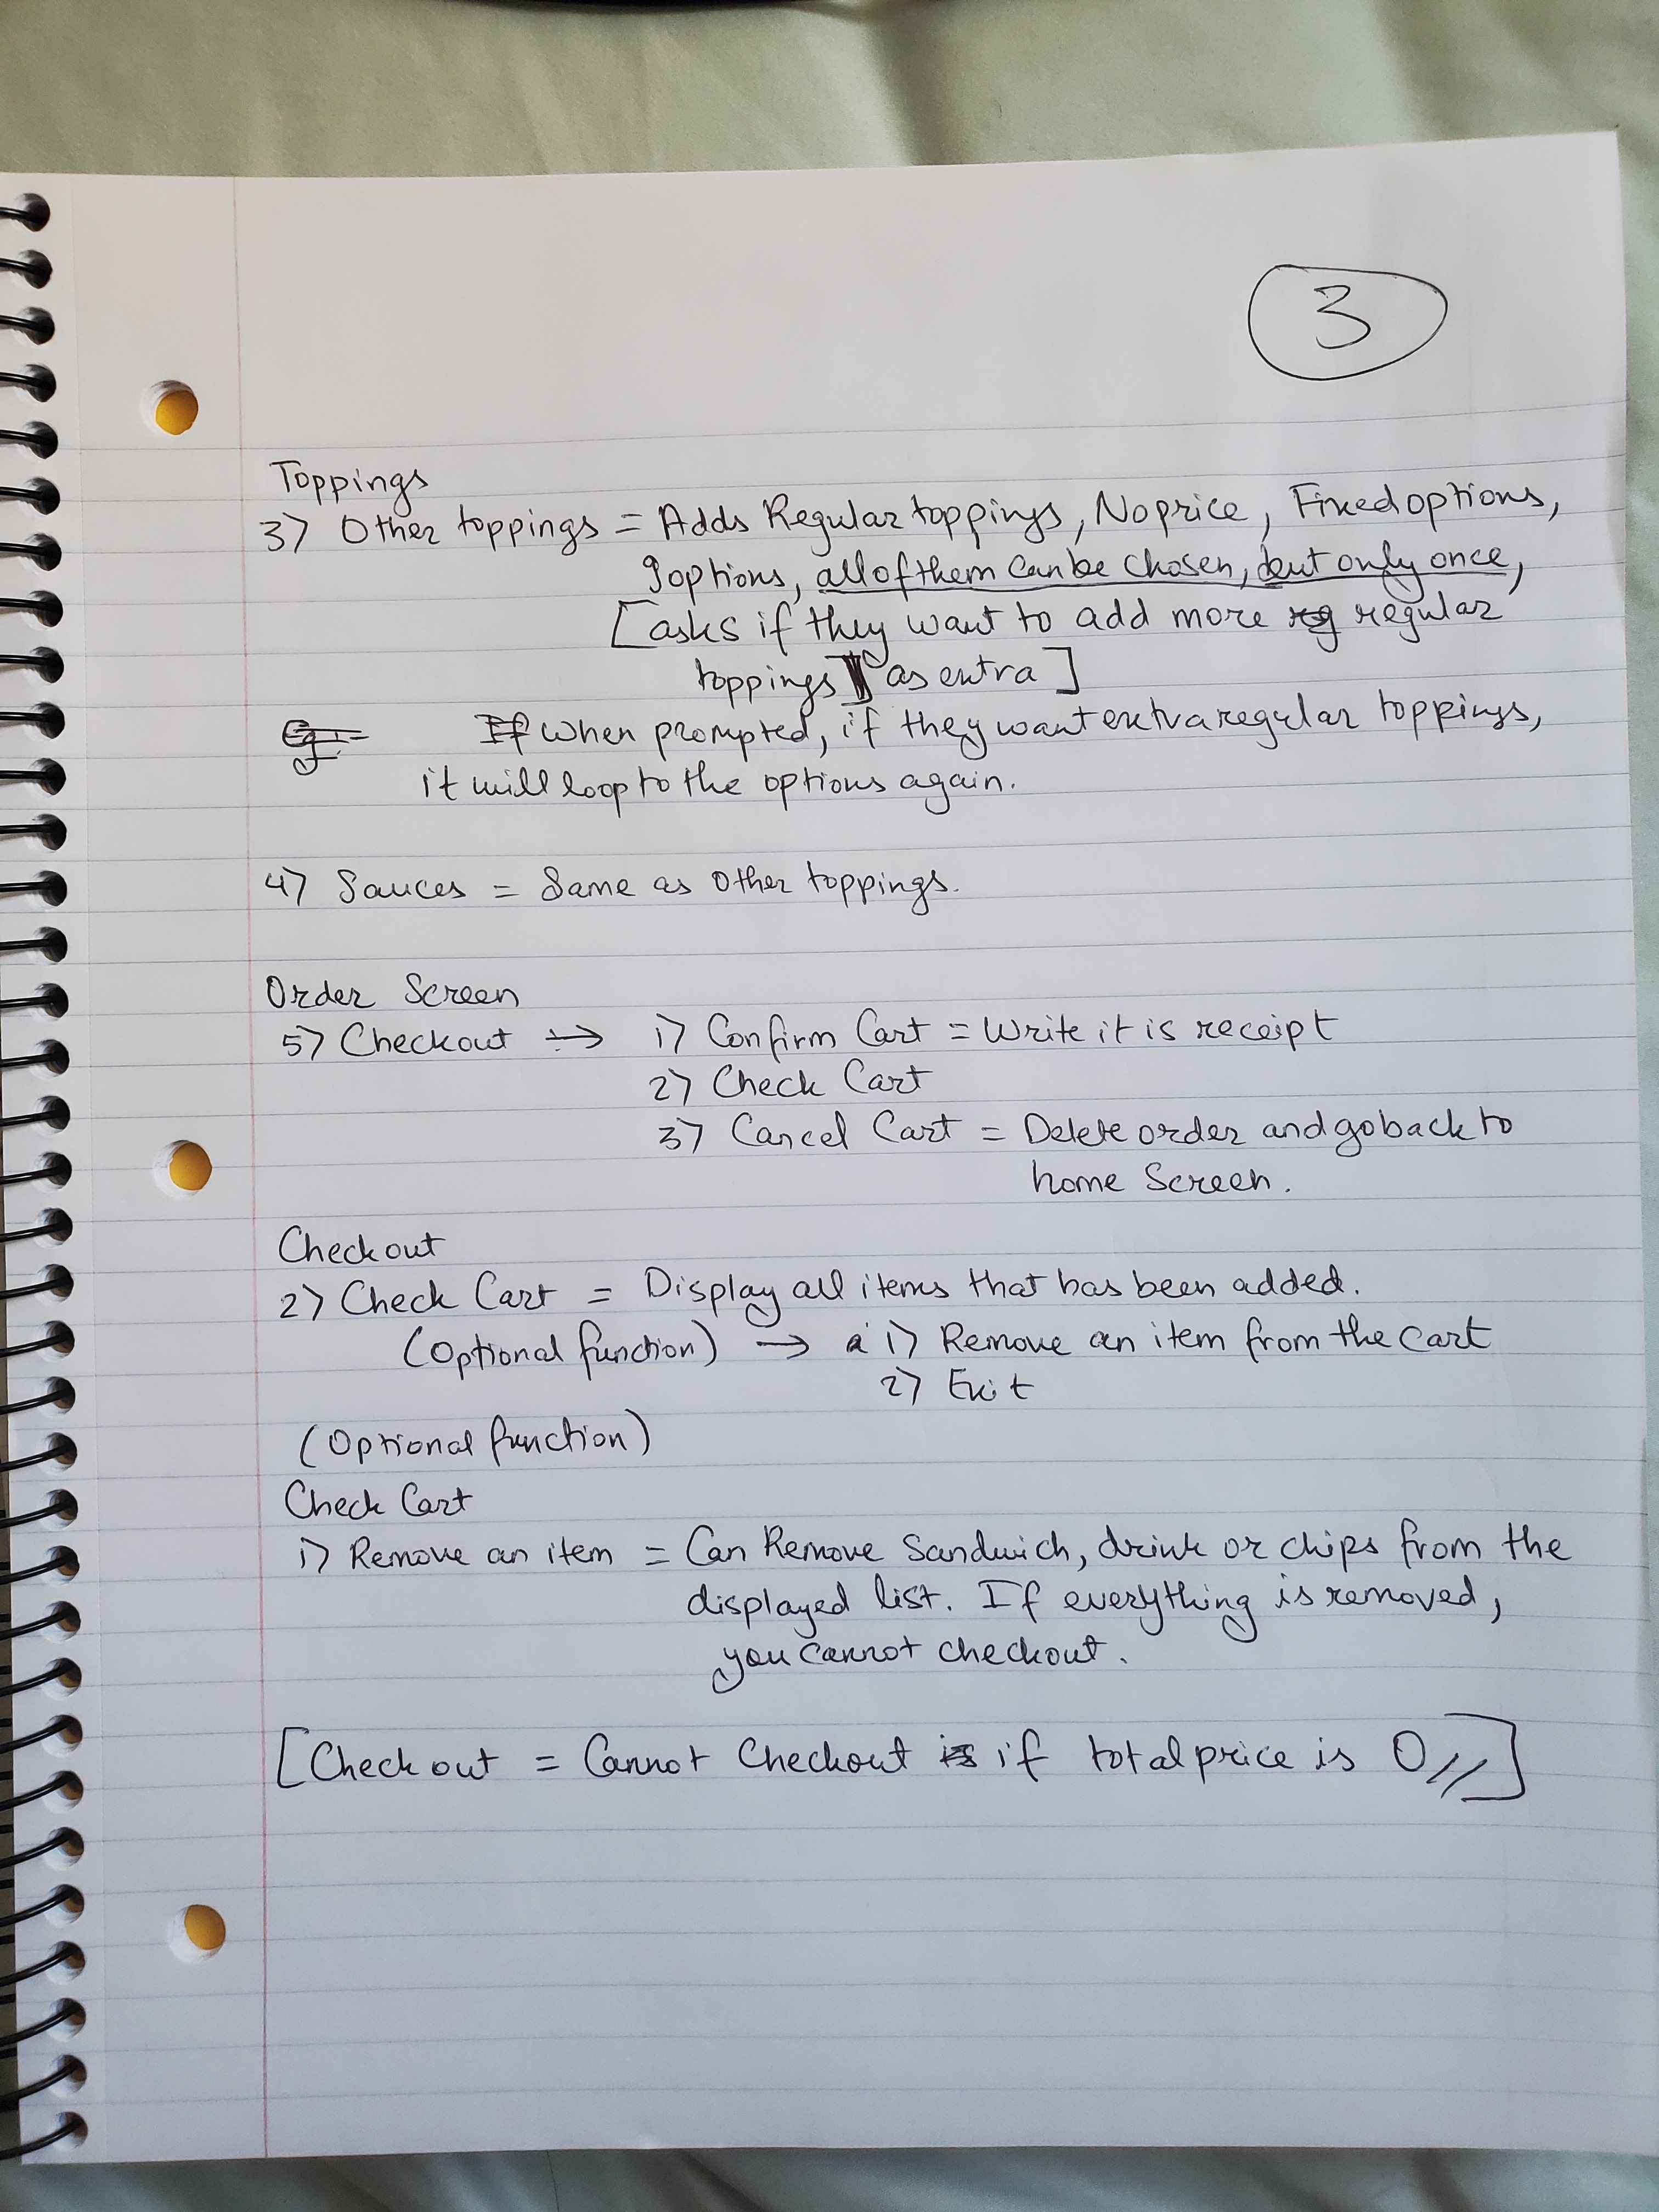 3
Toppings
3) Other toppings = Adds Regular toppings, No price, Fixed options,
9 options, all of them can be chosen, but only once,
[asks if they want to add more reg regular
toppings] as extra]
Eg:- If When prompted, if they want extra regular toppings,
it will loop to the options again.
4) Sauces = Same as Other toppings.
Order Screen
5) Checkout → 1) Confirm Cart = Write it is receipt
2) Check Cart
3) Cancel Cart = Delete order and go back to
home Screen.
Checkout
2) Check Cart = Display all items that has been added.
(Optional function) → 1) Remove an item from the cart
2) Exit
(Optional function)
Check Cart
1) Remove an item = Can Remove Sandwich, drink or chips from the
displayed list. If everything is removed,
you cannot checkout.
[Checkout = Cannot Checkout is if total price is 0//]